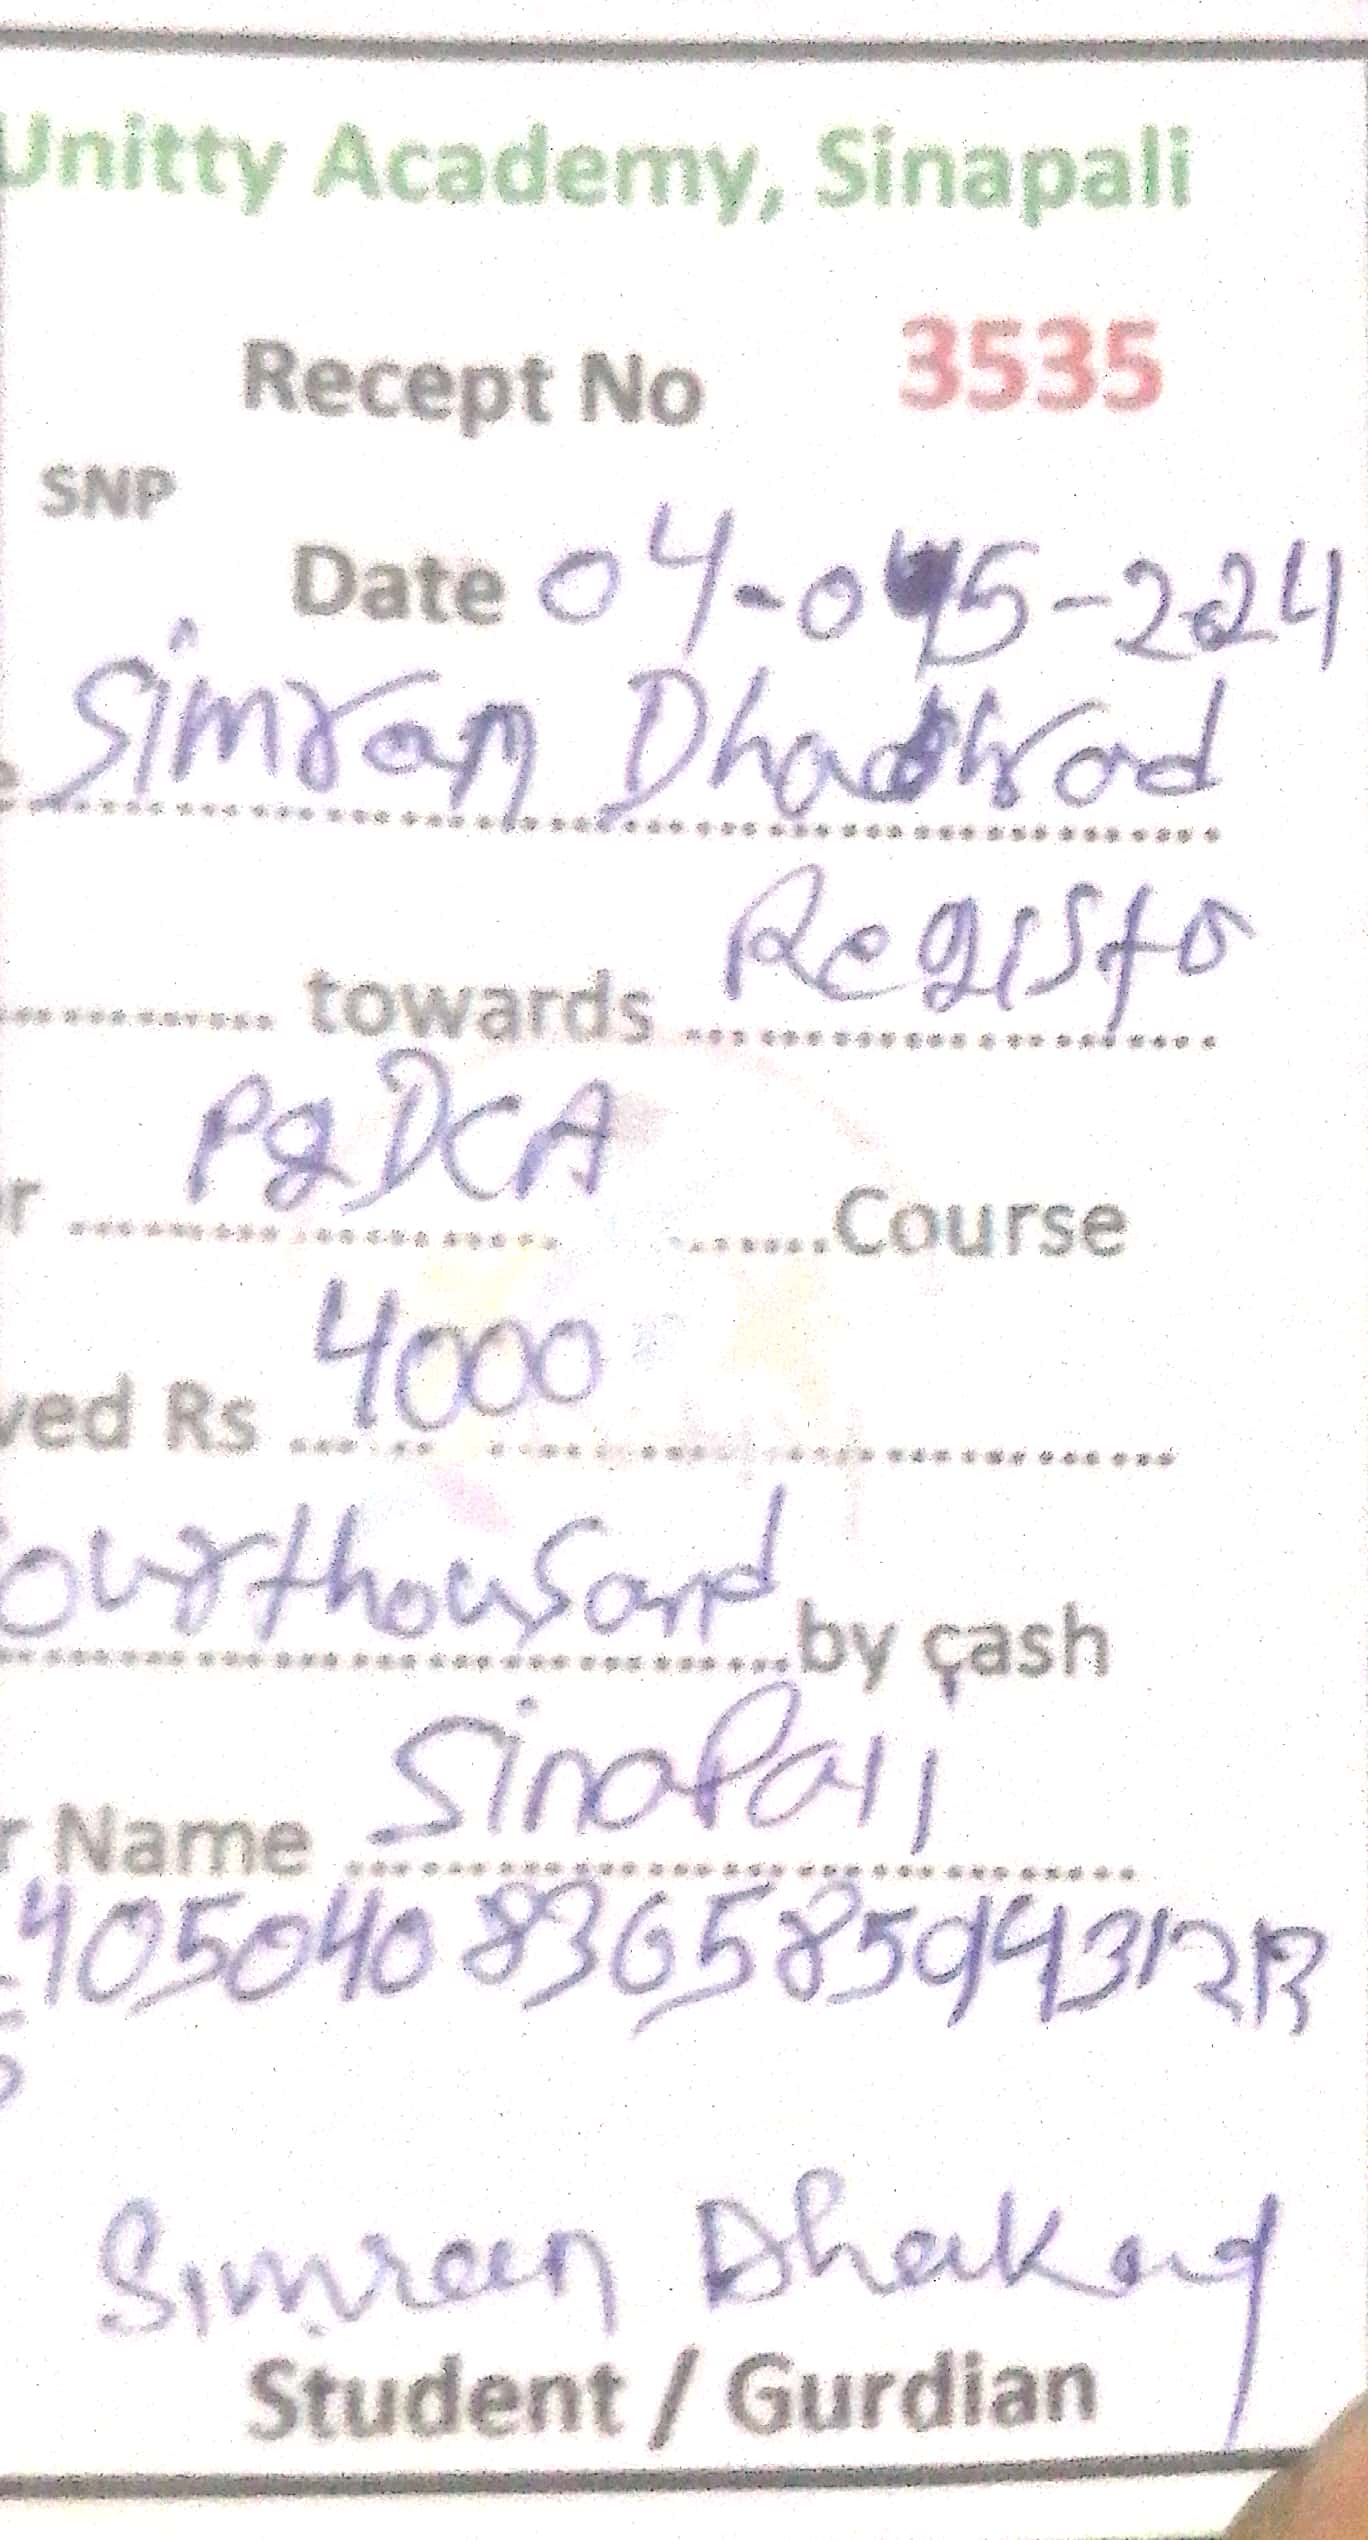 Unitty Academy, Sinapali
Recept No 3535
SNP
Date 04-05-224
Simran
towards Registo
PgDCA Course
ved Rs 4000
ourthousand by cash
Name Sinapali
Simran Dhakad
Student / Gurdian